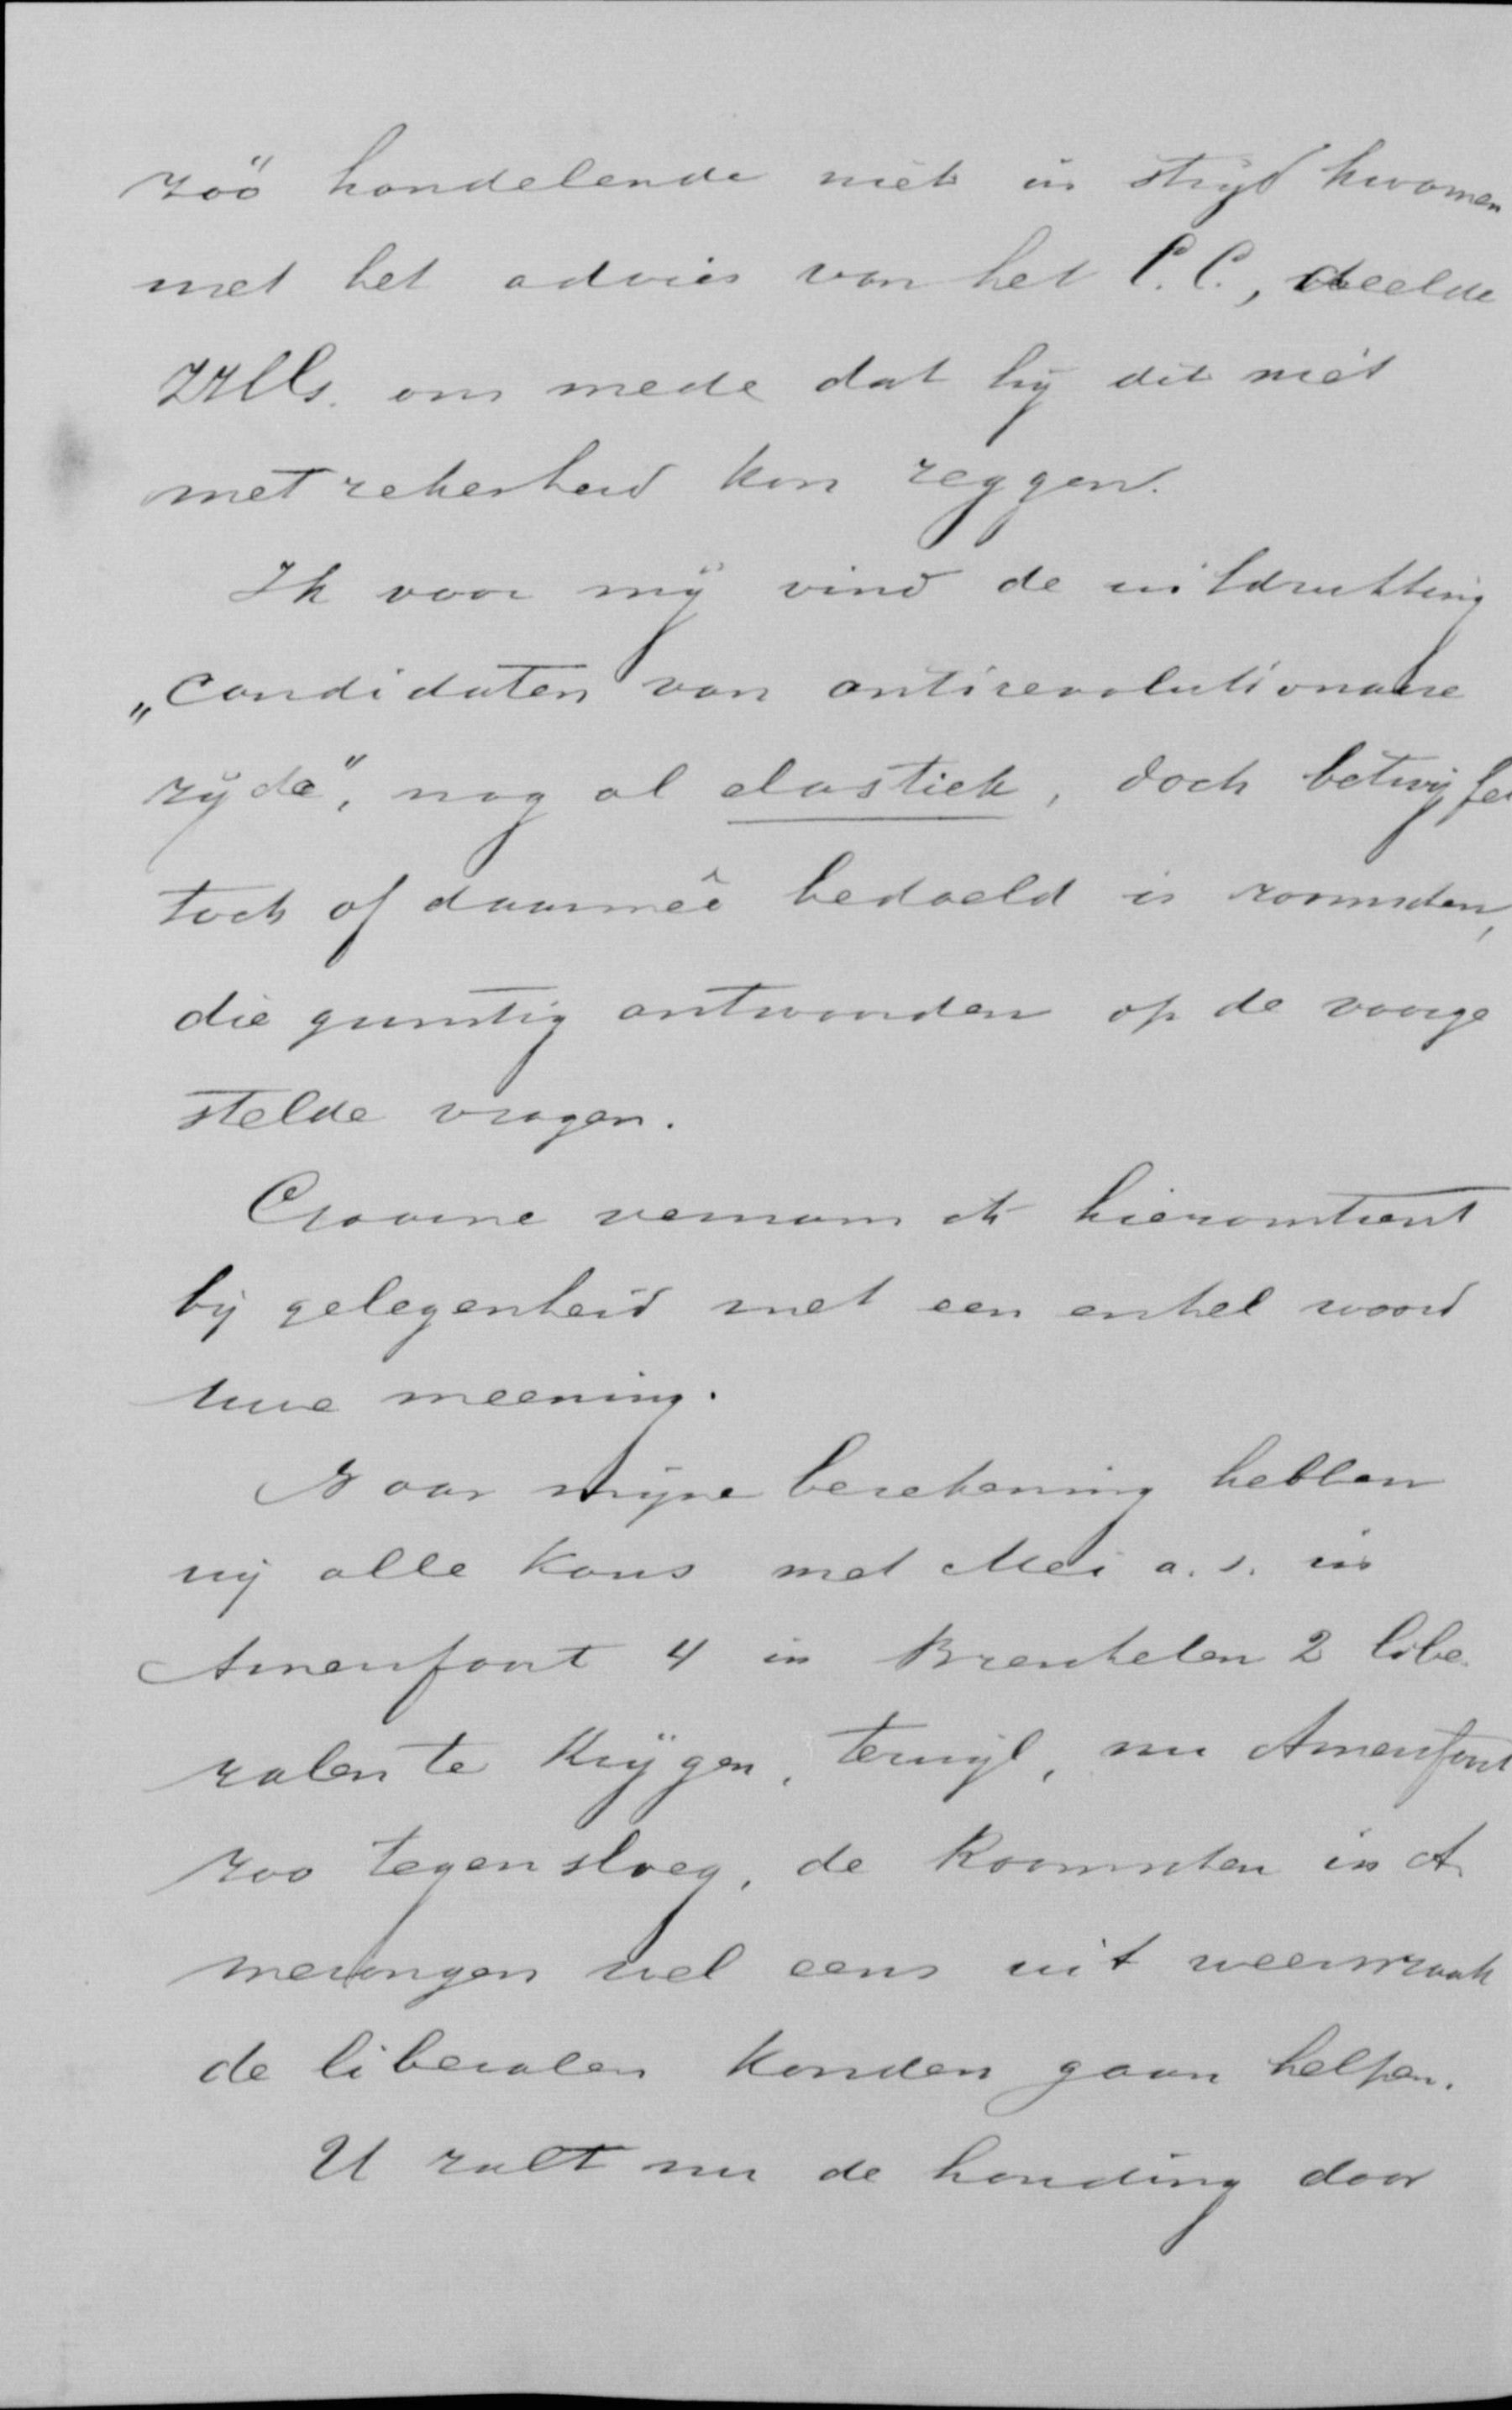 zóó handelende niet in strijd kwamen
met het advies van het C.C., deelde
ons mede dat hij dit niet
met zekerheid kon zeggen.
Ik voor mij vind de uitdrukking
„candidaten van antirevolutionaire
zijde”, nog al elastiek, doch betwijfel
toch of daarmeê bedoeld is roomschen,
die gunstig antwoorden op de voorge
stelde vragen.
Gaarne vernam ik hieromtrent
bij gelegenheid met een enkel woord
Uwe meening.
Naar mijne berekening hebben
wij alle kans met Mei a.s. in
Amersfoort 4 in Breukelen 2 libe
ralen te krijgen, terwijl, nu Amersfoort
zoo tegensloeg, de Roomschen in A
merongen wel eens uit weerwraak
de liberalen konden gaan helpen.
U zult nu de houding door